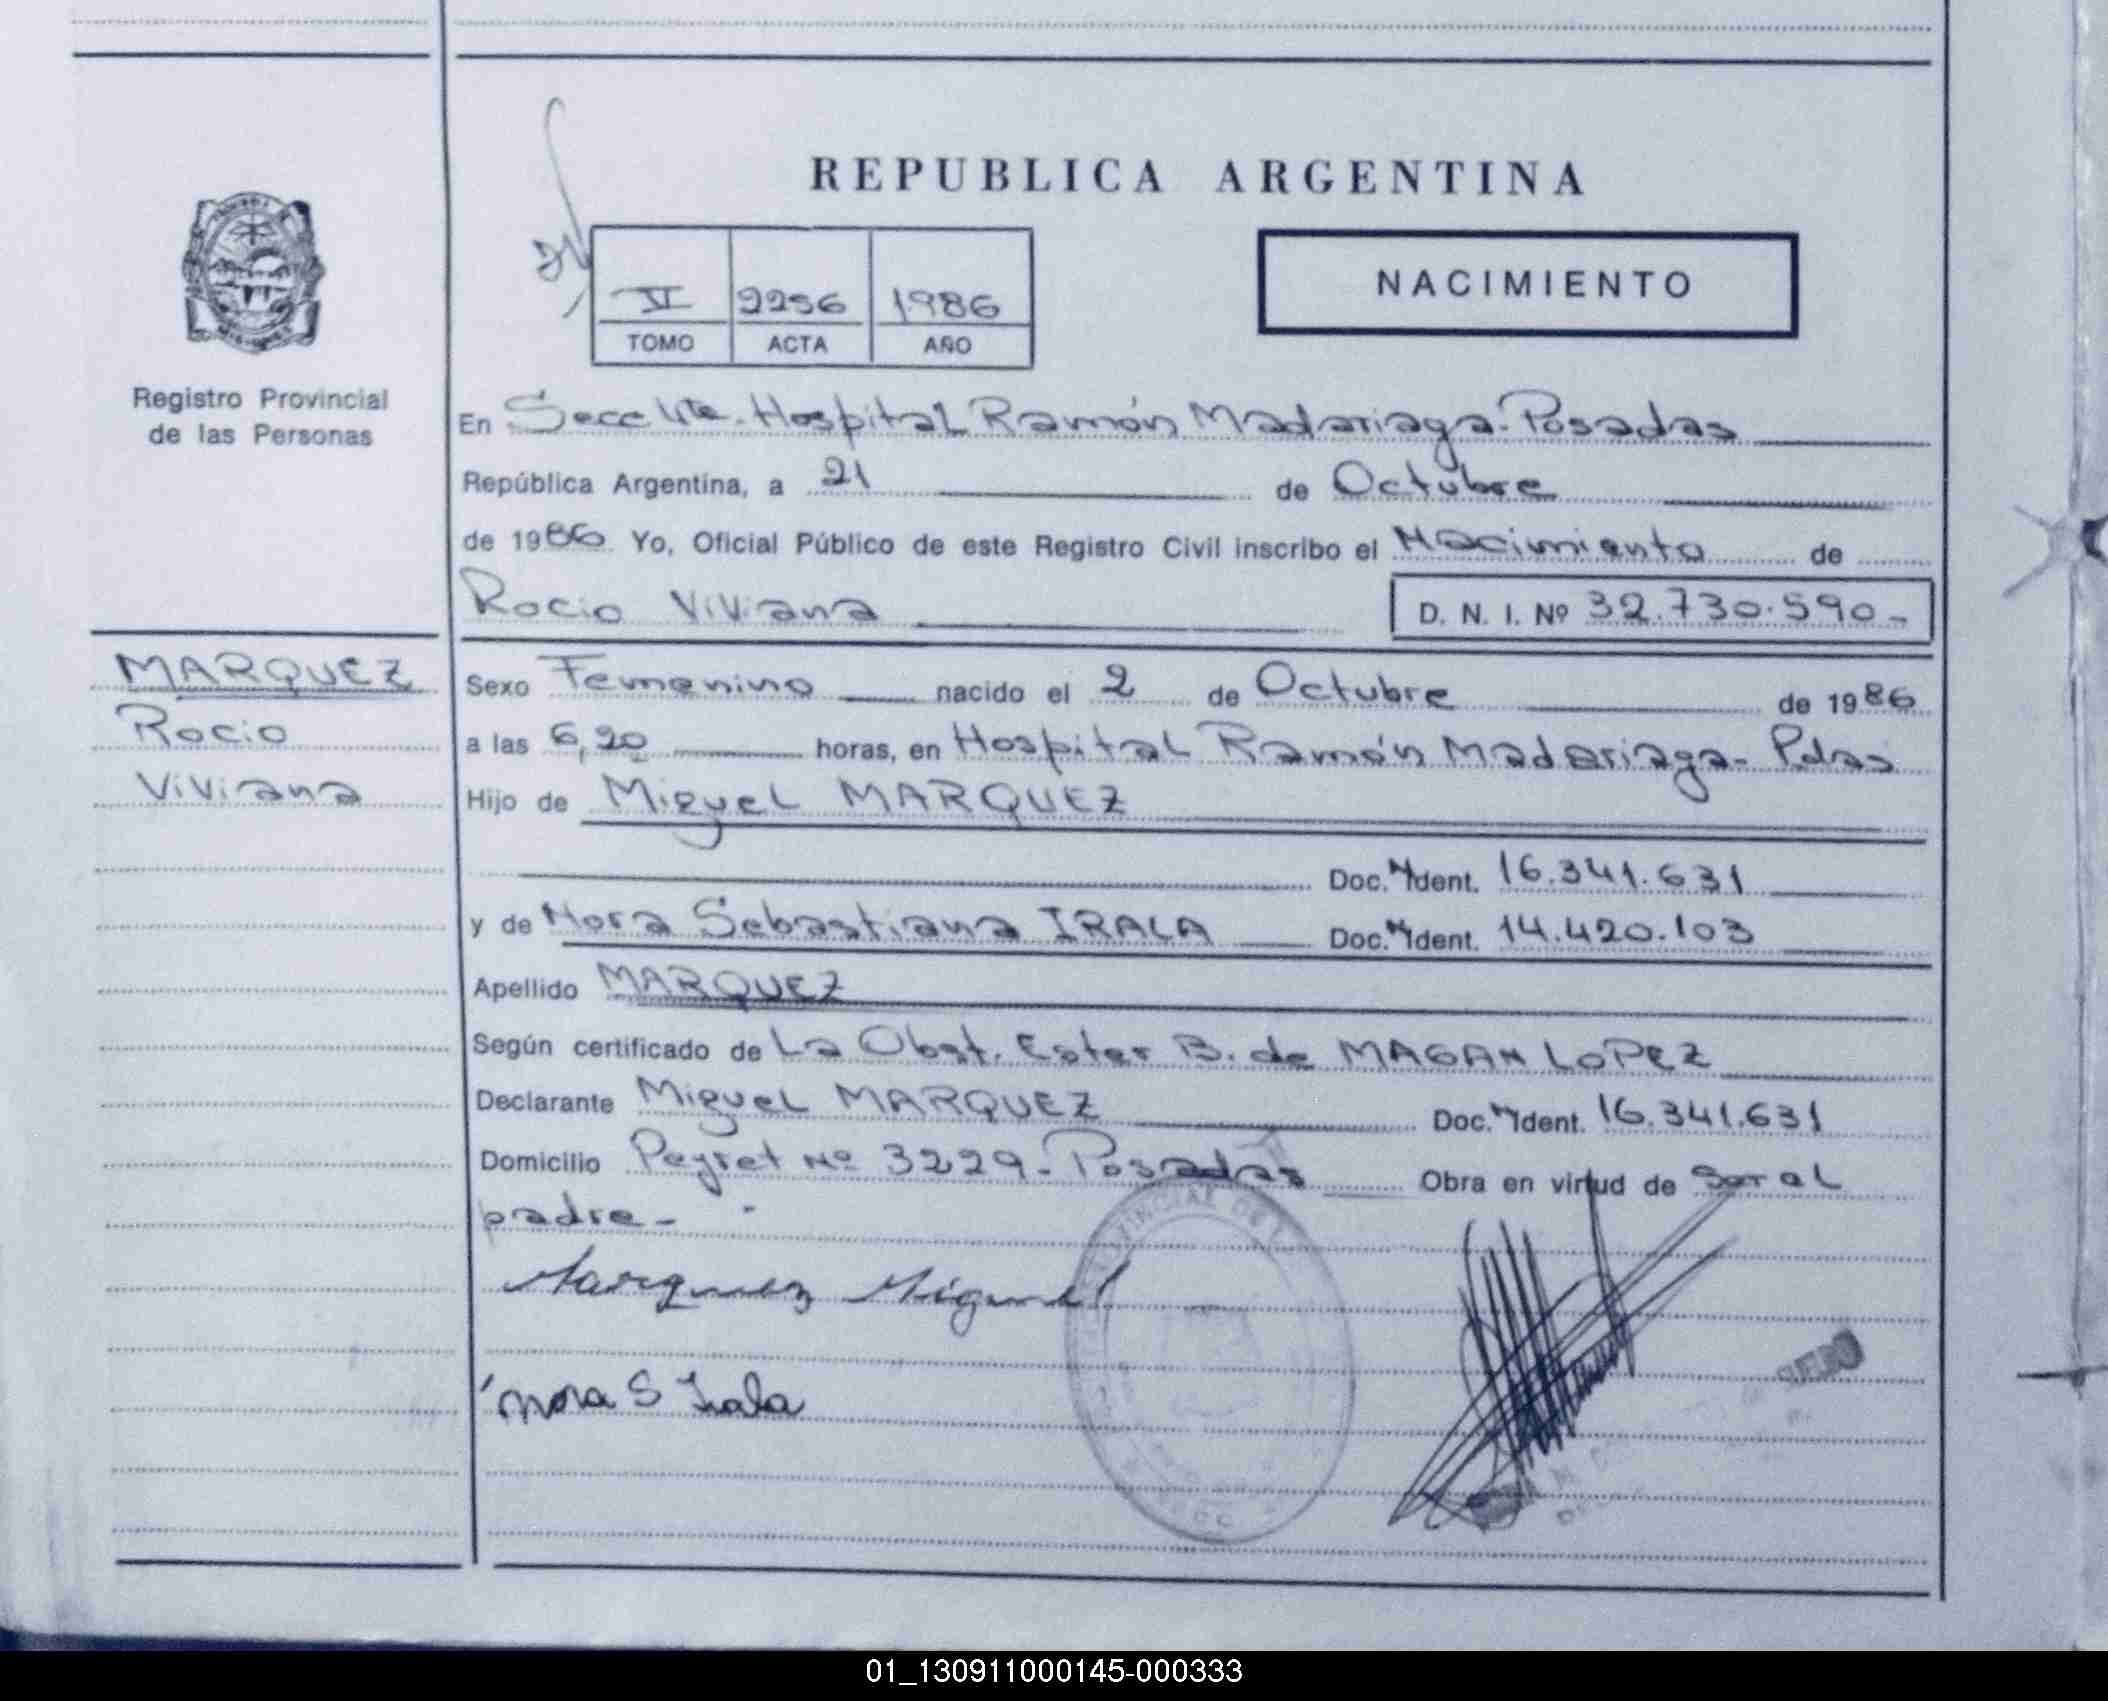 REPUBLICA ARGENTINA
NACIMIENTO
VI 2256 1986
TOMO ACTA AÑO
Registro Provincial
de las Personas
En Secc 4ta. Hospital Ramón Madariaga-Posadas
República Argentina, a 21 de Octubre
de 1986 Yo, Oficial Público de este Registro Civil inscribo el Nacimiento de
Rocio Viviana D. N. I. Nº 32.730.590-
MARQUEZ
Rocio
Viviana
Sexo Femenino nacido el 2 de Octubre de 1986
a las 6,20 horas, en Hospital Ramón Madariaga- Pdas
Hijo de Miguel MARQUEZ
Doc. Ident. 16.341.631
y de Nora Sebastiana IRALA Doc. Ident. 14.420.103
Apellido MARQUEZ
Según certificado de La Obst. Ester B. de MAGAN LOPEZ
Declarante Miguel MARQUEZ Doc. Ident. 16.341.631
Domicilio Peyret Nº 3229-Posadas Obra en virtud de Ser el
padre-
Marquez Miguel
Nora S Irala
01_130911000145-000333